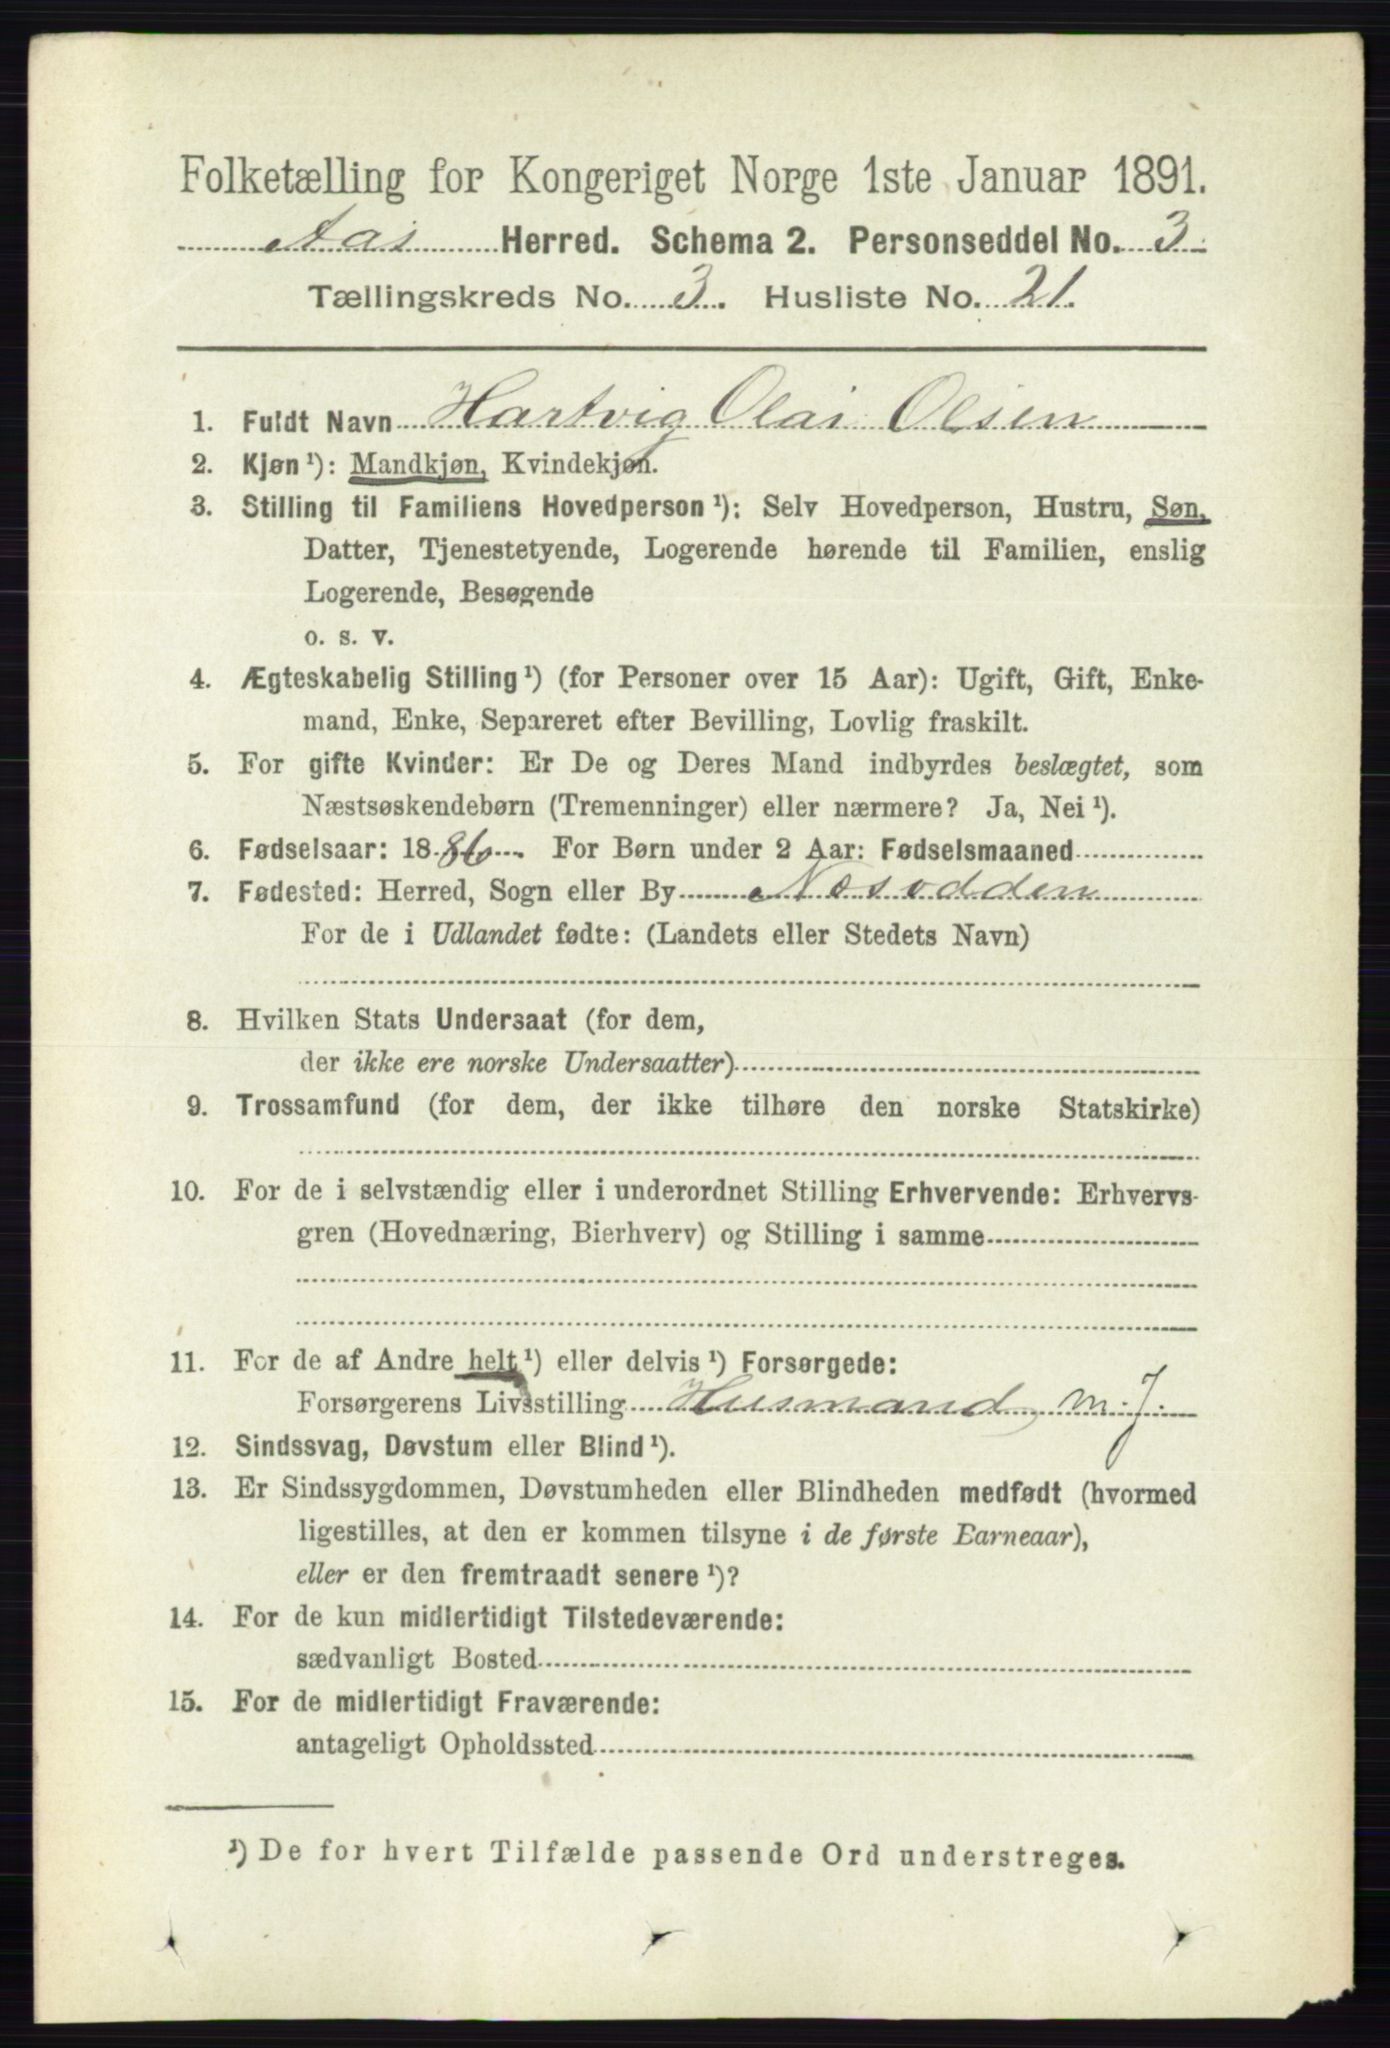 Folketælling for Kongeriget Norge 1ste Januar 1891.
Aas Herred. Schema 2. Personseddel No. 3
Tællingskreds No. 3. Husliste No. 21.
1. Fuldt Navn Hartvig Olai Olsen
2. Kjøn¹): Mandkjøn, Kvindekjøn.
3. Stilling til Familiens Hovedperson¹): Selv Hovedperson, Hustru, Søn,
Datter, Tjenestetyende, Logerende hørende til Familien, enslig
Logerende, Besøgende
o. s. v.
4. Ægteskabelig Stilling¹) (for Personer over 15 Aar): Ugift, Gift, Enke-
mand, Enke, Separeret efter Bevilling, Lovlig fraskilt.
5. For gifte Kvinder: Er De og Deres Mand indbyrdes beslægtet, som
Næstsøskendebørn (Tremenninger) eller nærmere? Ja, Nei¹).
6. Fødselsaar: 1886. For Børn under 2 Aar: Fødselsmaaned
7. Fødested: Herred, Sogn eller By Næsodden
For de i Udlandet fødte: (Landets eller Stedets Navn)
8. Hvilken Stats Undersaat (for dem,
der ikke ere norske Undersaatter)
9. Trossamfund (for dem, der ikke tilhøre den norske Statskirke)
10. For de i selvstændig eller i underordnet Stilling Erhvervende: Erhvervs-
gren (Hovednæring, Bierhverv) og Stilling i samme
11. For de af Andre helt¹) eller delvis¹) Forsørgede:
Forsørgerens Livsstilling Husmand m. J.
12. Sindssvag, Døvstum eller Blind¹).
13. Er Sindssygdommen, Døvstumheden eller Blindheden medfødt (hvormed
ligestilles, at den er kommen tilsyne i de første Barneaar),
eller er den fremtraadt senere¹)?
14. For de kun midlertidigt Tilstedeværende:
sædvanligt Bosted
15. For de midlertidigt Fraværende:
antageligt Opholdssted
¹) De for hvert Tilfælde passende Ord understreges.